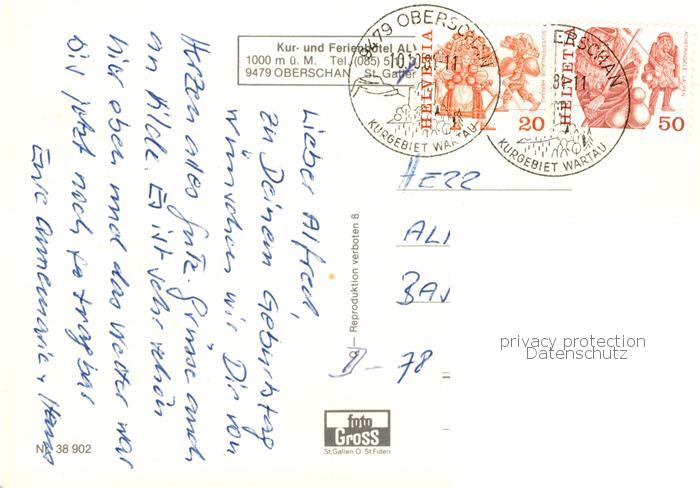 Kur- und Ferienhotel
1000 m ü. M. Tel. (085) 5
9479 OBERSCHAN St. Gallen
9479 OBERSCHAN
10.10.81-11
KURGEBIET WARTAU
HELVETIA
20
ERSCHAN
81-11
KURGEBIET WARTAU
HELVETIA
50
Lieber Alfred,
zu Deinem Geburtstag
wünschen wir Dir von
Herzen alles Gute. Grüsse auch
an Hilde. Es ist sehr schön
hier oben und das Wetter war
bis jetzt noch
Eure Annemarie + Hans
Reproduktion verboten 8
HERR
AL
BA
D - 78
privacy protection
Datenschutz
foto
GROSS
St.Gallen O St.Fiden
Nr. 38 902